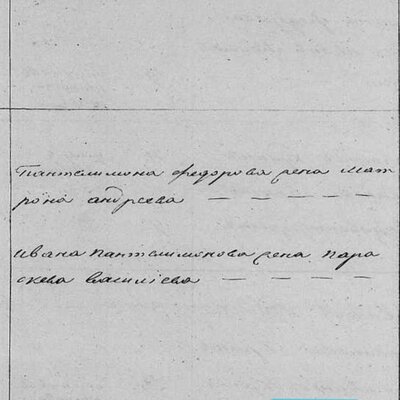 Пантелимона Федорова жена Мат
рона Андреева — — — —
Ивана Пантелимонова жена Пара
скева Василiева — — — —